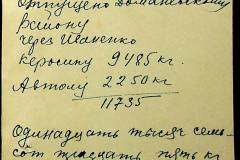 Отпущено Доманевскому
району
через Иваненко
керосину 9485 кг.
Автолу 2250 кг
11735
Одинадцать тысяч семь-
сот тридцать пять кг